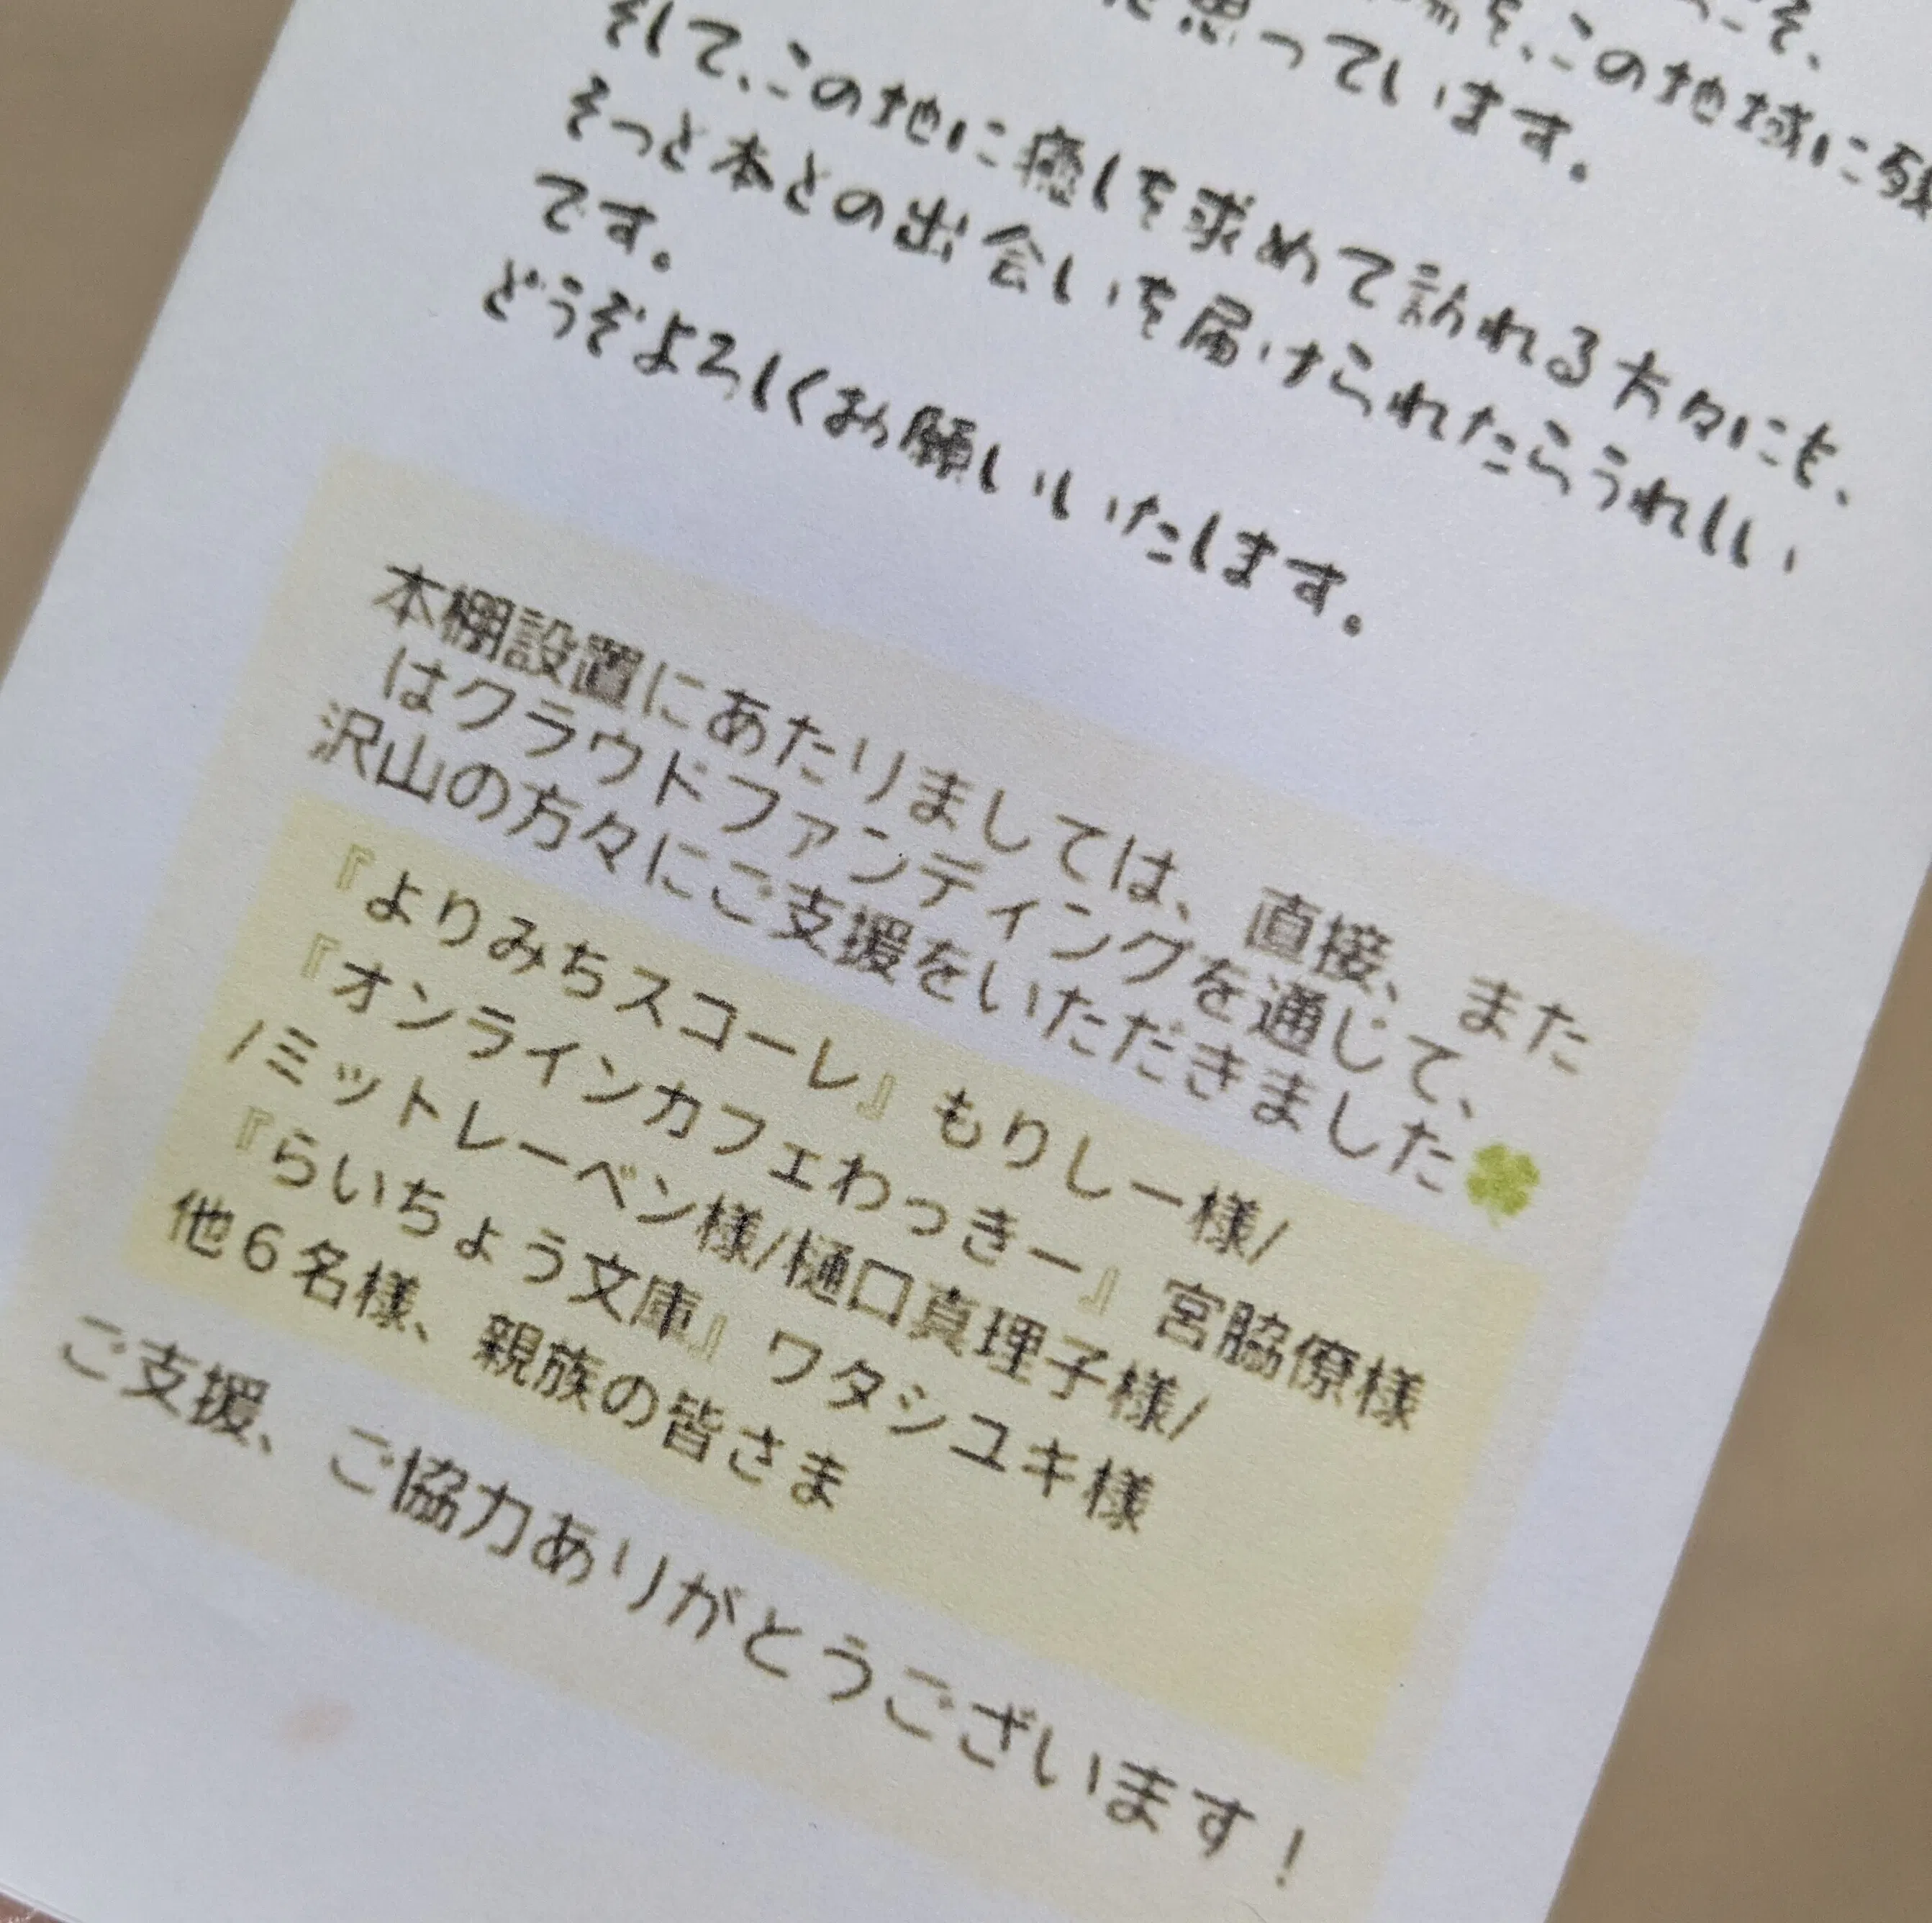 こそ、
を、この地域に残
思っています。
そして、この地に癒しを求めて訪れる方々にも、
そっと本との出会いを届けられたらうれしい
です。
どうぞよろしくお願いいたします。
本棚設置にあたりましては、直接、また
はクラウドファンディングを通じて、
沢山の方々にご支援をいただきました🍀
『よりみちスコーレ』もりしー様/
『オンラインカフェわっきー』宮脇僚様
/ミットレーベン様/樋口真理子様/
『らいちょう文庫』ワタシユキ様
他6名様、親族の皆さま
ご支援、ご協力ありがとうございます！